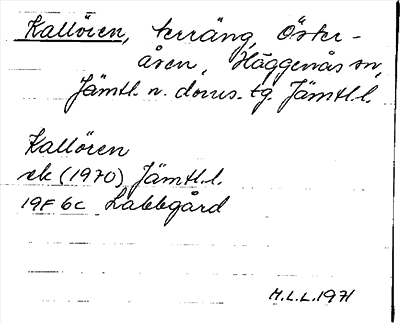 Kallören, terräng, Öster-
åsen, Häggenås sn,
Jämtl. n. doms. tg. Jämtl.l.
Kallören
ek (1970) Jämtl.l.
19F 6c Labbgård
M.L.L. 1971